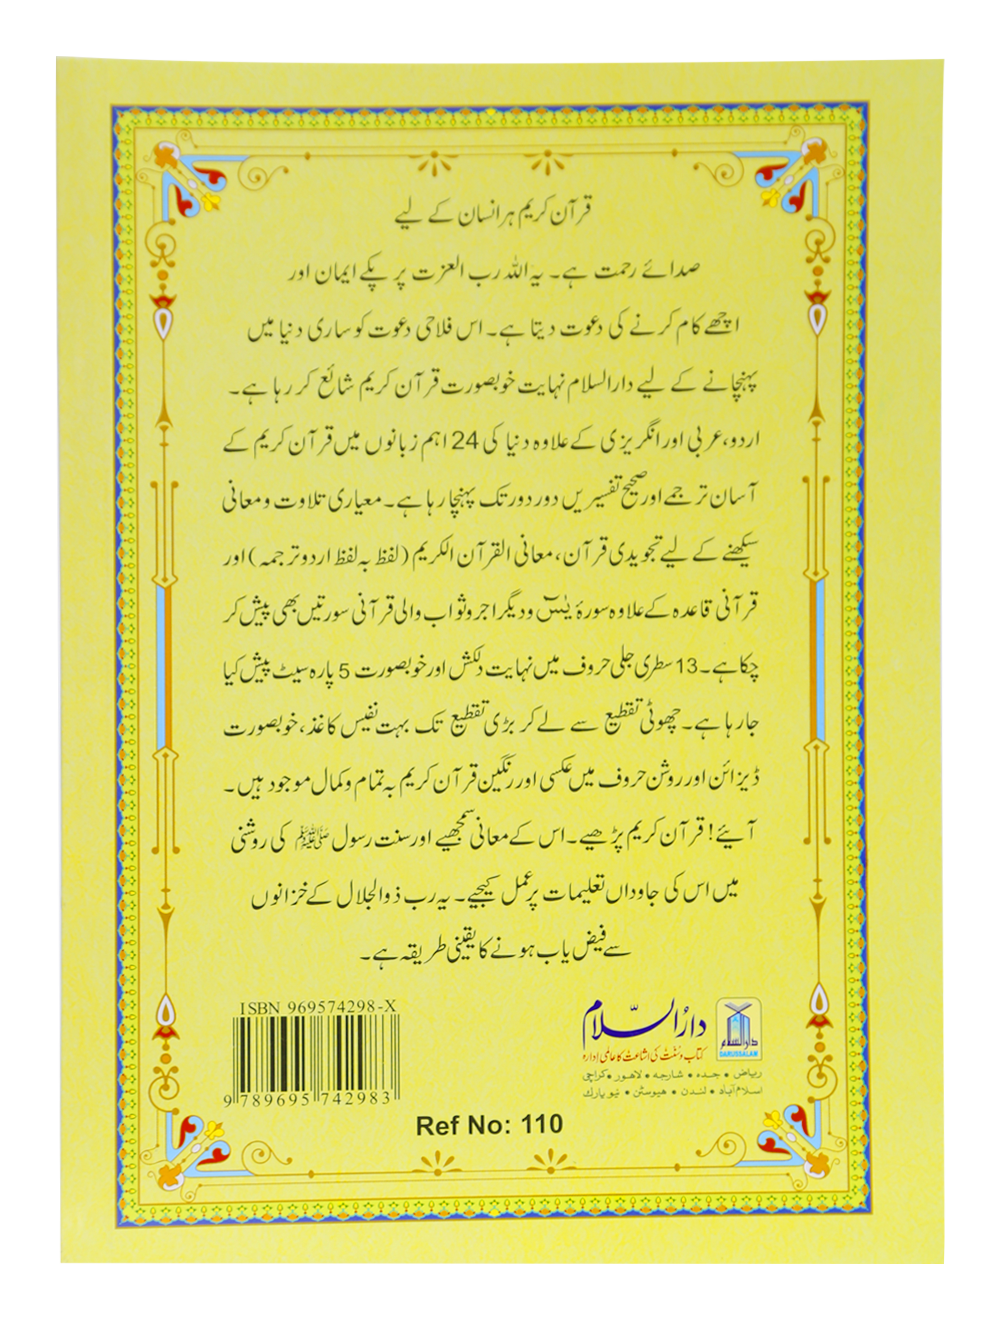 قرآن کریم ہر انسان کے لیے
صدائے رحمت ہے۔ یہ اللہ رب العزت پر پکے ایمان اور
اچھے کام کرنے کی دعوت دیتا ہے۔ اس فلاحی دعوت کو ساری دنیا میں
پہنچانے کے لیے دارالسلام نہایت خوبصورت قرآن کریم شائع کر رہا ہے۔
اردو، عربی اور انگریزی کے علاوہ دنیا کی 24 اہم زبانوں میں قرآن کریم کے
آسان ترجمے اور صحیح تفسیریں دور دور تک پہنچا رہا ہے۔ معیاری تلاوت و معانی
سیکھنے کے لیے تجویدی قرآن، معانی القرآن الکریم (لفظ بہ لفظ اردو ترجمہ) اور
قرآنی قاعدہ کے علاوہ سورۂ یٰسٓ و دیگر اجر و ثواب والی قرآنی سورتیں بھی پیش کر
چکا ہے۔ 13 سطری جلی حروف میں نہایت دلکش اور خوبصورت 5 پارہ سیٹ پیش کیا
جا رہا ہے۔ چھوٹی تقطیع سے لے کر بڑی تقطیع تک بہت نفیس کاغذ، خوبصورت
ڈیزائن اور روشن حروف میں عکسی اور رنگین قرآن کریم بہ تمام و کمال موجود ہیں۔
آیئے! قرآن کریم پڑھیے۔ اس کے معانی سمجھیے اور سنت رسول ﷺ کی روشنی
میں اس کی جاوداں تعلیمات پر عمل کیجیے۔ یہ رب ذوالجلال کے خزانوں
سے فیض یاب ہونے کا یقینی طریقہ ہے۔
ISBN 969574298-X
9 789695 742983
دارالسلام
DARUSSALAM
دارُالسّلام
کتاب و سنت کی اشاعت کا عالمی ادارہ
ریاض • جدہ • شارجہ • لاہور • کراچی
اسلام آباد • لندن • ہیوسٹن • نیویارک
Ref No: 110